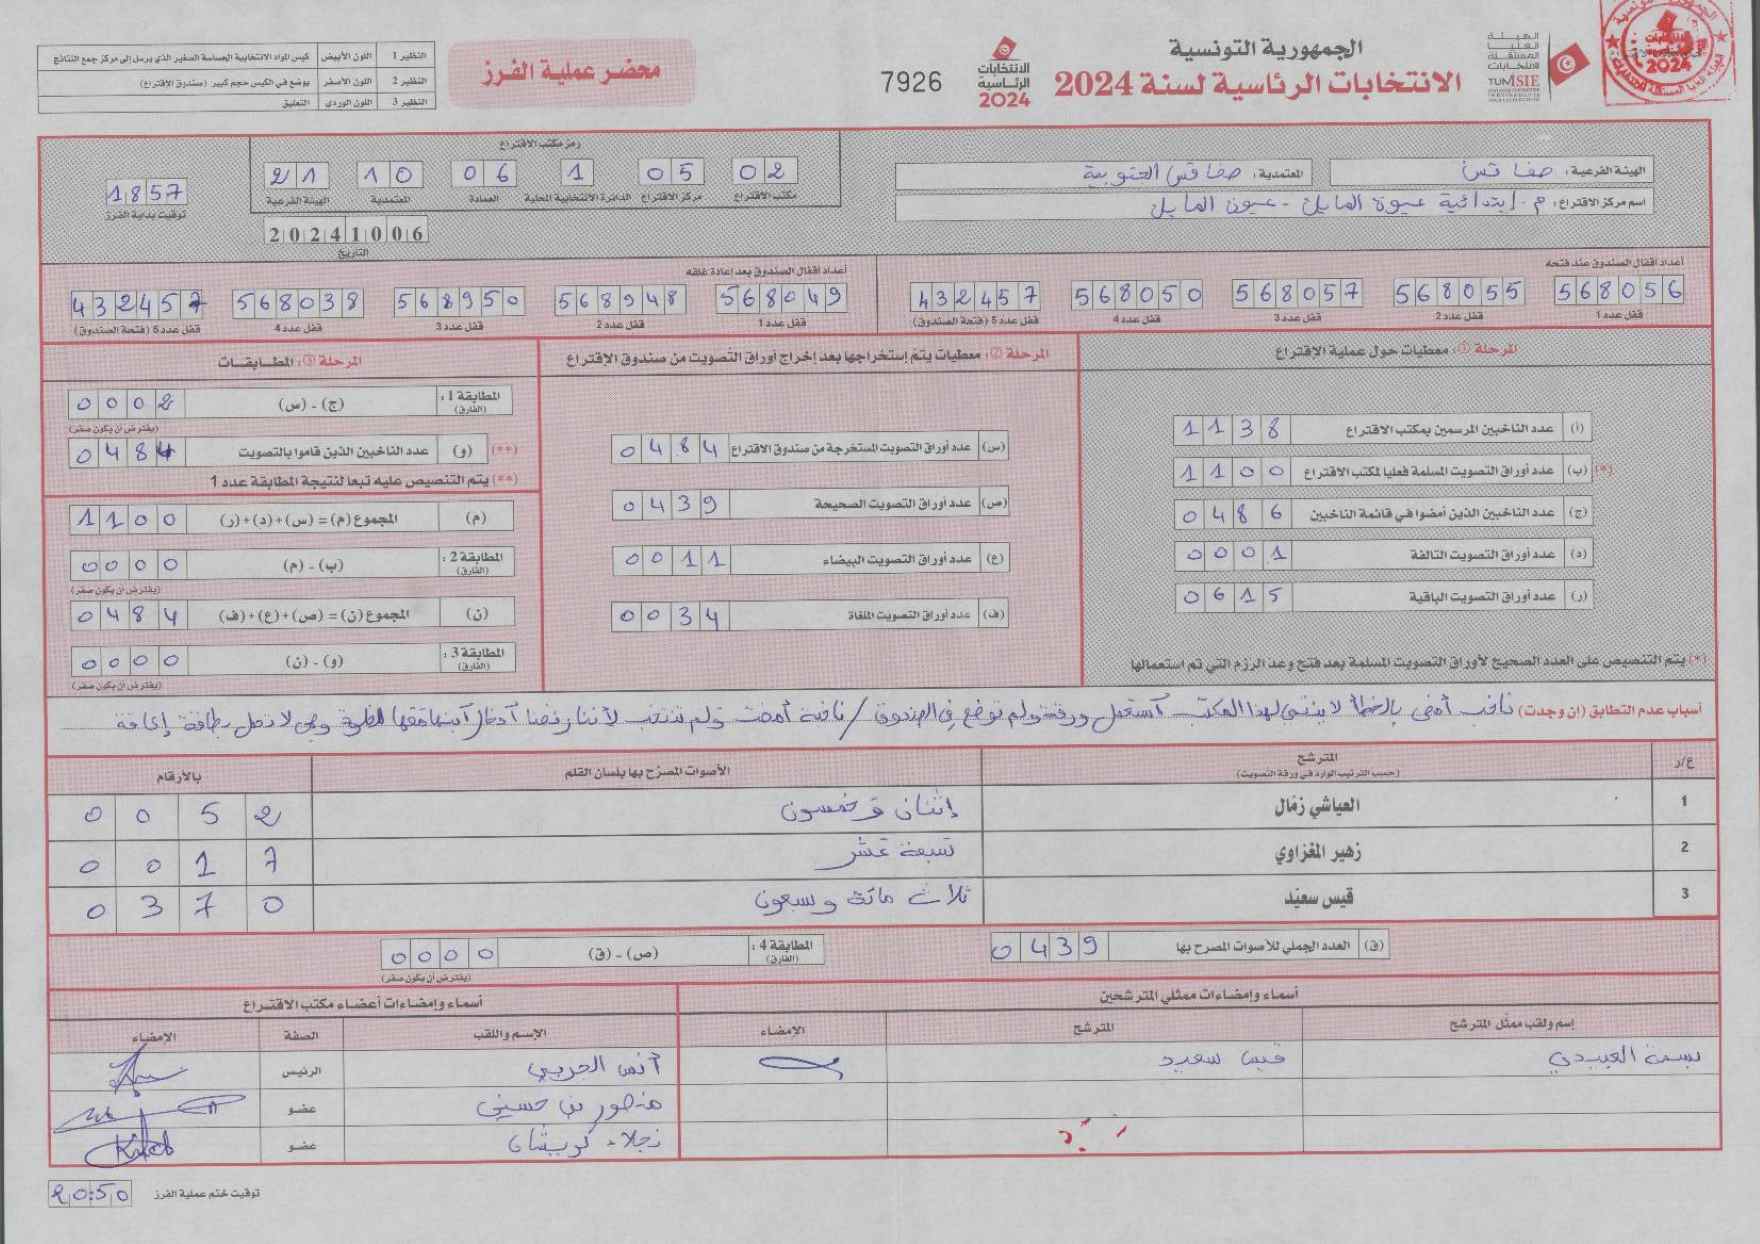 الجمهورية التونسية
الانتخابات الرئاسية لسنة 2024
الهيئة العليا المستقلة للانتخابات
TUNISIE
الانتخابات الرئاسية 2024
7926
محضر عملية الفرز
النظير 1 اللون الأبيض كيس المواد الانتخابية الحساسة الصغير الذي يرسل إلى مركز جمع النتائج
النظير 2 اللون الأصفر يوضع في الكيس حجم كبير (صندوق الاقتراع)
النظير 3 اللون الوردي التعليق
الهيئة الفرعية: صفاقس
المعتمدية: صفاقس الجنوبية
اسم مركز الاقتراع: م. إبتدائية عيون المايل - عيون المايل
رمز مكتب الاقتراع
02 05 1 06 10 21
مكتب الاقتراع مركز الاقتراع الدائرة الانتخابية المحلية العمادة المعتمدية الهيئة الفرعية
20241006
التاريخ
1857
توقيت بداية الفرز
أعداد أقفال الصندوق عند فتحه
568056 568055 568057 568050 432457
قفل عدد 1 قفل عدد 2 قفل عدد 3 قفل عدد 4 قفل عدد 5 (فتحة الصندوق)
أعداد أقفال الصندوق بعد إعادة غلقه
568049 568948 568950 568038 432457
قفل عدد 1 قفل عدد 2 قفل عدد 3 قفل عدد 4 قفل عدد 5 (فتحة الصندوق)
المرحلة 1: معطيات حول عملية الاقتراع
(أ) عدد الناخبين المرسمين بمكتب الاقتراع 1138
(*) (ب) عدد أوراق التصويت المسلمة فعليا لمكتب الاقتراع 1100
(ج) عدد الناخبين الذين أمضوا في قائمة الناخبين 0486
(د) عدد أوراق التصويت التالفة 0001
(ر) عدد أوراق التصويت الباقية 0615
(*) يتم التنصيص على العدد الصحيح لأوراق التصويت المسلمة بعد فتح وعد الرزم التي تم استعمالها
المرحلة 2: معطيات يتم إستخراجها بعد إخراج أوراق التصويت من صندوق الاقتراع
(س) عدد أوراق التصويت المستخرجة من صندوق الاقتراع 0484
(ص) عدد أوراق التصويت الصحيحة 0439
(ع) عدد أوراق التصويت البيضاء 0011
(ف) عدد أوراق التصويت الملغاة 0034
المرحلة 3: المطابقات
المطابقة 1: (الفارق) (ج) - (س) 0002
(يفترض أن يكون صفر)
(**) (و) عدد الناخبين الذين قاموا بالتصويت 0484
(**) يتم التنصيص عليه تبعا لنتيجة المطابقة عدد 1
(م) المجموع (م) = (س)+(د)+(ر) 1100
المطابقة 2: (الفارق) (ب) - (م) 0000
(يفترض أن يكون صفر)
(ن) المجموع (ن) = (ص)+(ع)+(ف) 0484
المطابقة 3: (الفارق) (و) - (ن) 0000
(يفترض أن يكون صفر)
أسباب عدم التطابق (إن وجدت) ناخب أمضى بالخطأ لا ينتمي لهذا المكتب آستعمل ورقة ولم توضع في الصندوق / ناخبة أمضت ولم تنتخب لأننا رفضنا آدخال آبنها معها للخلوة وهي لا تحمل بطاقة إعاقة
ع/ر المترشح (حسب الترتيب الوارد في ورقة التصويت) الأصوات المصرّح بها بلسان القلم بالأرقام
1 العياشي زمّال إثنان و خمسون 0052
2 زهير المغزاوي سبعة عشر 0017
3 قيس سعيّد ثلاث مائة و سبعون 0370
(ق) العدد الجملي للأصوات المصرح بها 0439
المطابقة 4: (الفارق) (ص) - (ق) 0000
(يفترض أن يكون صفر)
أسماء وإمضاءات ممثلي المترشحين
إسم ولقب ممثّل المترشح المترشح الإمضاء
بسمة العبيدي قيس سعيد
أسماء وإمضاءات أعضاء مكتب الاقتراع
الإسم واللقب الصفة الإمضاء
أنس الحربي الرئيس
منصور بن حسين عضو
نجلاء كريشان عضو
توقيت ختم عملية الفرز 20:50